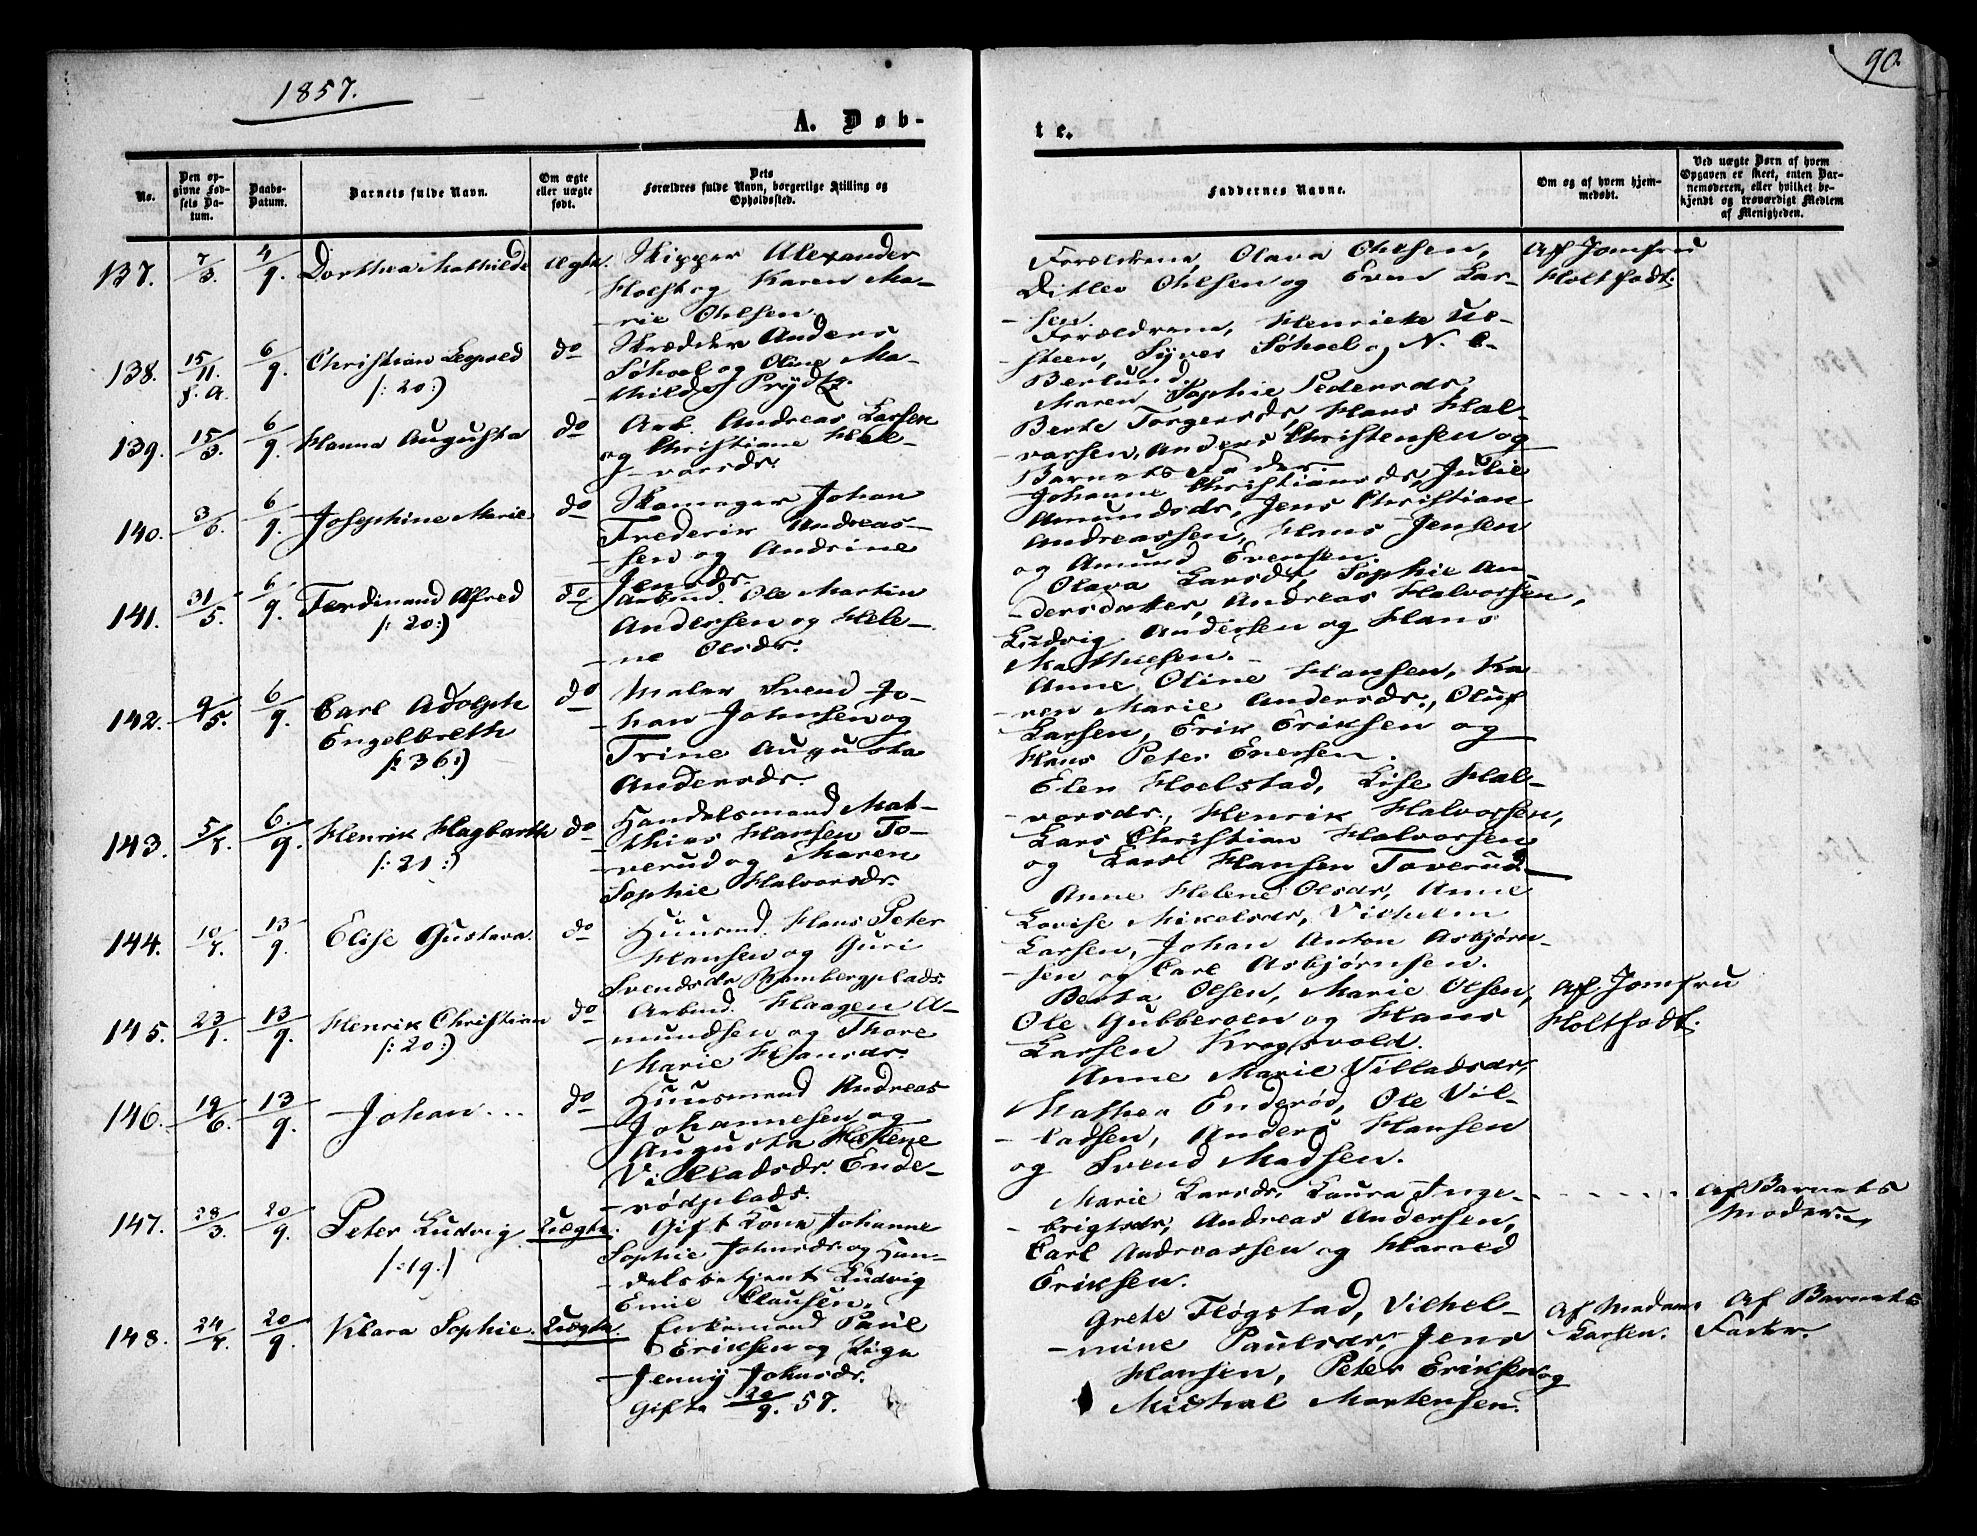 1857.
90.
A. Døb-
te.
No.
Den opgivne Fødsels Datum.
Daabs-Datum.
Barnets fulde Navn.
Om ægte eller uægte født.
Dets Forældres fulde Navn, borgerlige Stilling og Opholdssted.
Faddernes Navne.
Om og af hvem hjemmedøbt.
Ved uægte Børn af hvem Opgaven er skeet, enten Barnemoderen, eller hvilket bekjendt og troværdigt Medlem af Menigheden.
137. 7/3. 4/9. Dorthea Mathilde ægte. Skipper Alexander
Holst og Karen Ma-
rie Ohlsen.
Forældrene, Olava Ohlsen,
Ditlev Ohlsen og Even Lar-
sen.
Af Jomfru
Holtfodt.
138. 15/11. f. A. 6/9. Christian Leopold
/: 20:/
do Skrædder Anders
Søhoel og Oline Ma-
thilde Prydtz.
Forældrene, Henriette Ul-
steen, Syver Søhoel og N. C.
Berlund.
139. 15/3. 6/9. Hanna Augusta do Arb. Andreas Larsen
og Christiane Hal-
vorsdr.
Maren Sophie Pedersdr,
Berte Torgersdr, Hans Hal-
vorsen, Anders Christensen og
Barnets Fader.
140. 3/6. 6/9. Josephine Marie do Skomager Johan
Frederik Andreas-
sen og Andrine
Jensdr.
Johanne Christiansdr, Julie
Amundsdr, Jens Christian
Andreassen, Hans Jensen
og Amund Evensen.
141. 31/5. 6/9. Ferdinand Alfred
/: 20:/
do Arbmd. Ole Martin
Andersen og Hele-
ne Olsdr.
Olava Larsdr, Sophie An-
dersdatter, Andreas Halvorsen,
Ludvig Andersen og Hans
Mathiesen.
142. 9/5. 6/9. Carl Adolph
Engelbreth
/: 36:/
do Maler Svend Jo-
han Johnsen og
Trine Augusta
Andersdr.
Anne Oline Hansen, Ka-
ren Marie Andersdr., Oluf
Larsen, Erik Eriksen og
Hans Peter Evensen.
143. 5/7. 6/9. Henrik Hagbarth
/: 21:/
do Handelsmand Mat-
thias Hansen To-
verud og Maren
Sophie Halvorsdr.
Elen Hoelstad, Lise Hal-
vorsdr., Henrik Halvorsen,
Lars Christian Halvorsen
og Carl Hansen Toverud.
144. 10/7. 13/9. Elise Gustava. do Huusmd. Hans Peter
Hansen og Guri
Svendsdr
Anne Helene Olsdr, Anne
Lovise Mikelsdr, Vilhelm
Larsen, Johan Anton Asbjørn-
sen og Carl Asbjørnsen.
145. 23/1. 13/9. Henrik Christian
/: 20:/
do Arbmd. Haagen A-
mundsen og Thore
Marie Hansdr.
Berta Olsen, Marie Olsen,
Ole Gubberoen og Hans
Larsen Krogsvold.
Af Jomfru
Holtfodt.
146. 19/6. 13/9. Johan... do Huusmand Andreas
Johannesen og
Augusta Helene
Villadsdr. Ende-
rødplads.
Anne Marie Villadsdr,
Mathea Enderød, Ole Vil-
ladsen, Anders Hansen
og Svend Madsen.
147. 28/3. 20/9. Peter Ludvig
/: 19:/
Uægte. Gift Kone Johanne
Sophie Johnsdr og Han-
delsbetjent Ludvig
Emil Clausen.
Marie Larsdr, Laura Inge-
brigtsdr, Andreas Andersen,
Carl Andreassen og Harald
Eriksen.
Af Barnets
Moder.
148. 24/7. 20/9. Klara Sophie. Uægte. Enkemand Paul
Eriksen og Pige
Jenny Johnsdr.
Gifte 20/9. 57.
Grete Fløgstad, Vilhel-
mine Paulsdr, Jens
Hansen, Peter Eriksen og
Michal Mortensen.
Af Madam
Larsen.
Af Barnets
Fader.